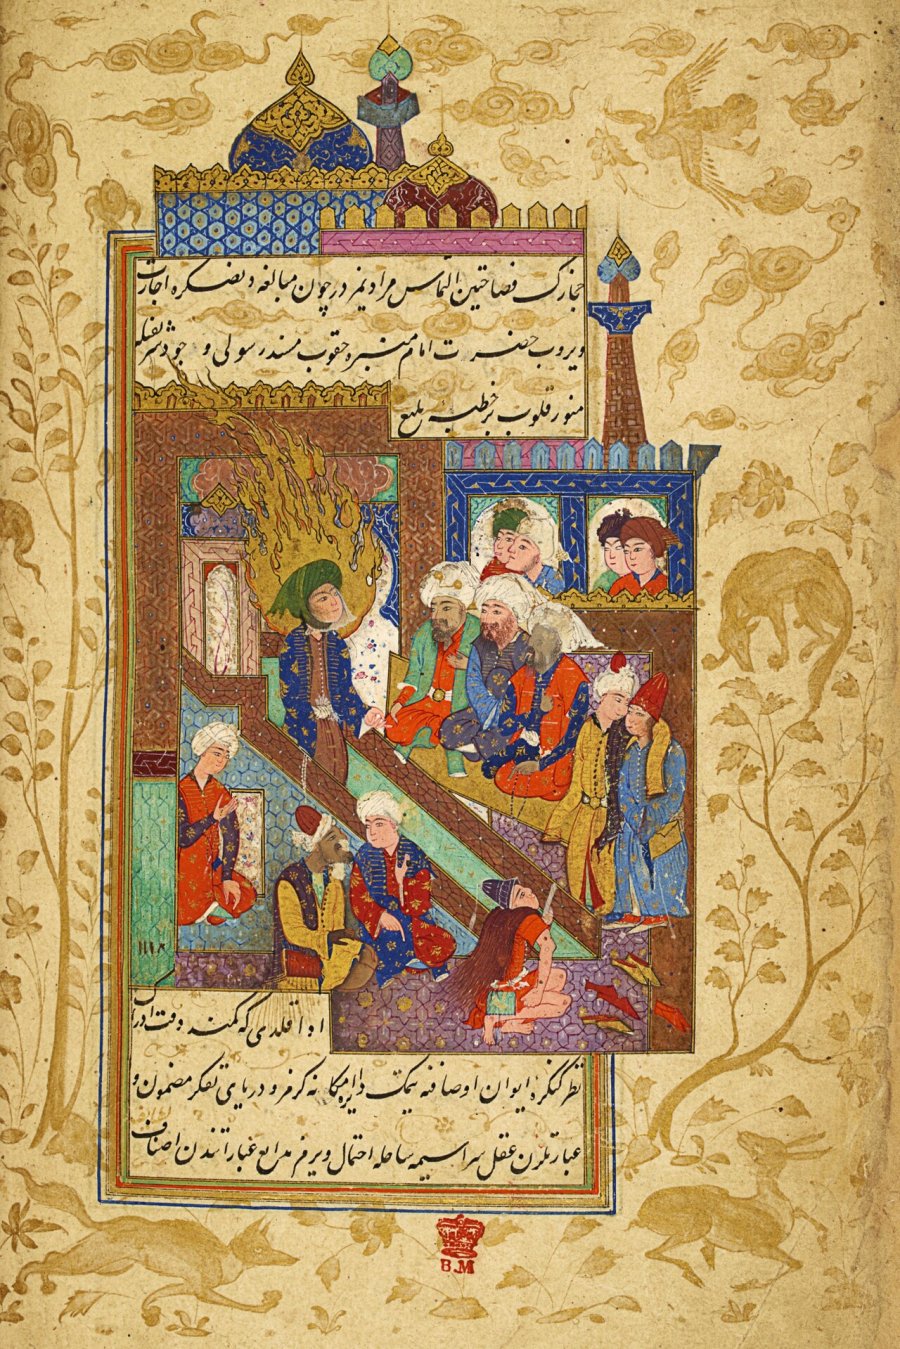 حجازك فصاحتین التماس مرادیمز در چون مبالغه دنصكره اجازت
ویروب حضرت امام منبره چقوب مسند رسولی وجود شریفله
منور قلوب بر خطبه بلیغ
ادا قلدی كه كمند دقت ادراك
نظر كنكره ایوان اوصافنه یتمك دایره امكانه كرمز و دریای تفكر مضمون و
عبارتلرن عقل سراسیمه ساحله احتمال ویرمز عباراتندن اصناف
B.M